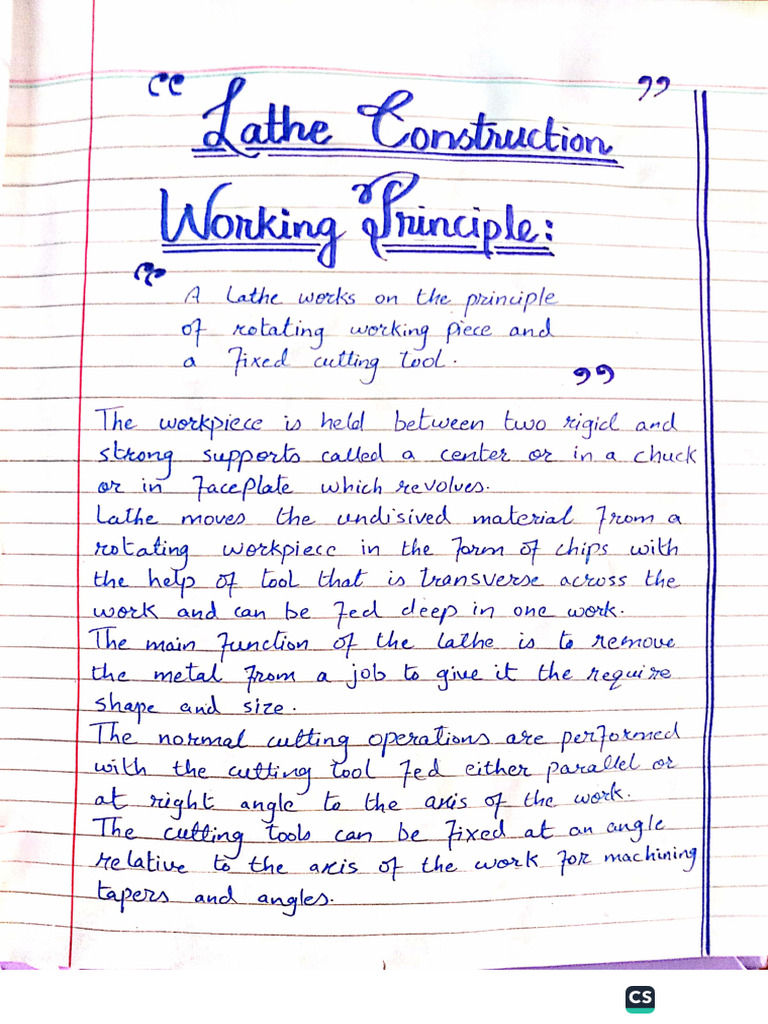 “ Lathe Construction ”
Working Principle:
“ A Lathe works on the principle
of rotating working piece and
a Fixed cutting tool. ”
The workpiece is held between two rigid and
strong supports called a center or in a chuck
or in FacePlate which revolves.
Lathe moves the undisived material From a
rotating workpiece in the Form of chips with
the help of tool that is transverse across the
work and can be Fed deep in one work.
The main Function of the lathe is to remove
the metal From a job to give it the require
shape and size.
The normal cutting operations are performed
with the cutting tool Fed either parallel or
at right angle to the axis of the work.
The cutting tools can be Fixed at an angle
relative to the axis of the work For machining
tapers and angles.
CS